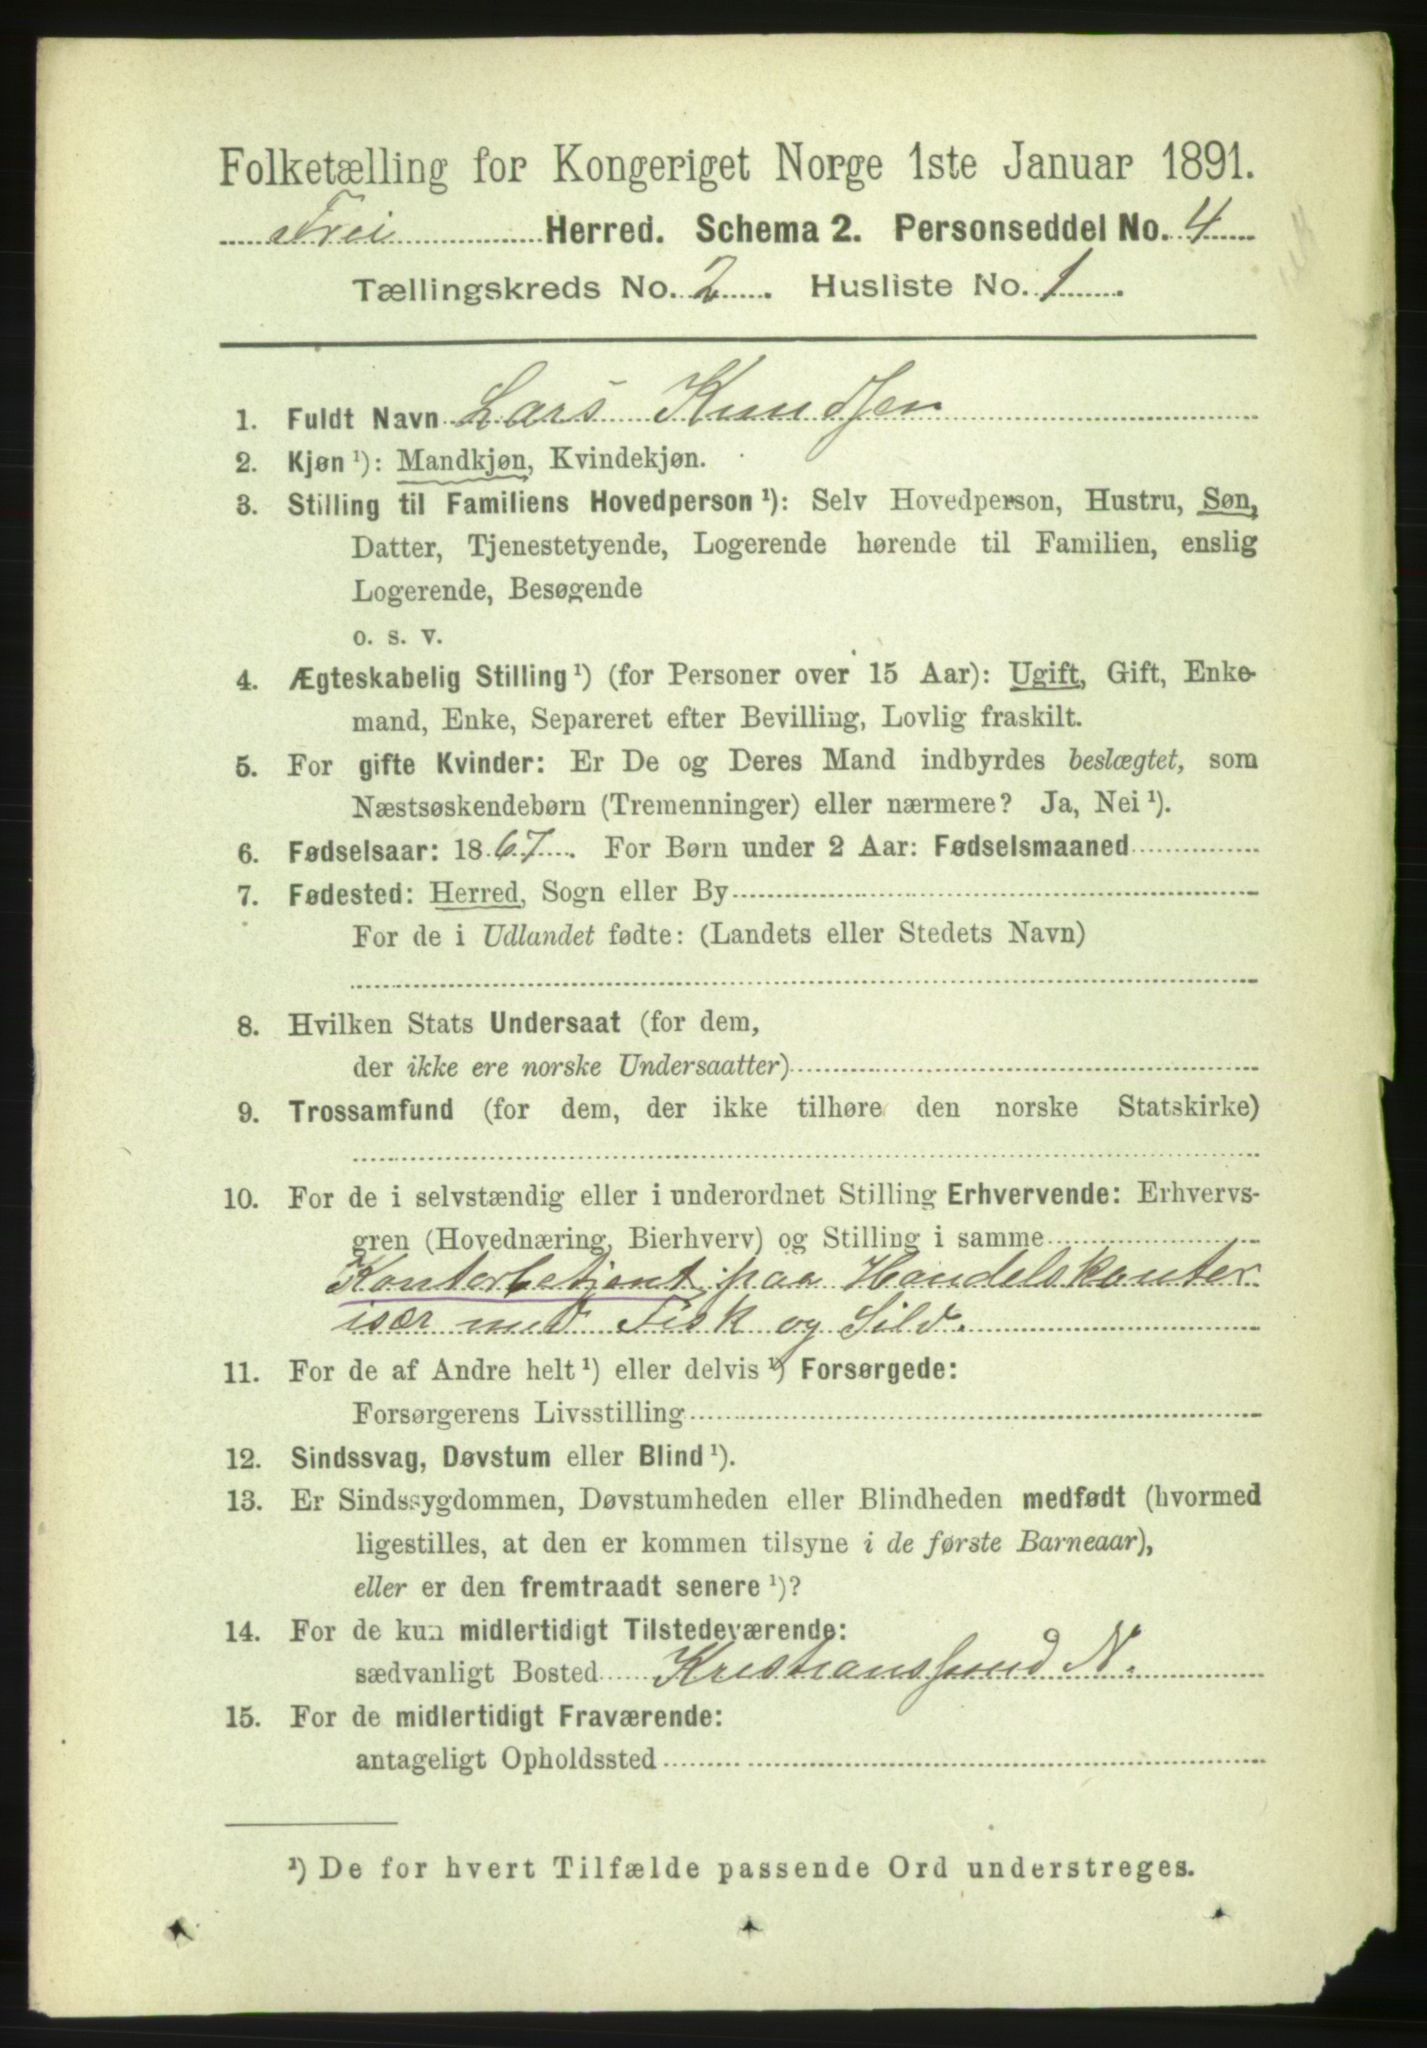 Folketælling for Kongeriget Norge 1ste Januar 1891.
Frei Herred. Schema 2. Personseddel No. 4
Tællingskreds No. 2. Husliste No. 1.
1. Fuldt Navn Lars Knudsen
2. Kjøn ¹): Mandkjøn, Kvindekjøn.
3. Stilling til Familiens Hovedperson ¹): Selv Hovedperson, Hustru, Søn,
Datter, Tjenestetyende, Logerende hørende til Familien, enslig
Logerende, Besøgende
o. s. v.
4. Ægteskabelig Stilling ¹) (for Personer over 15 Aar): Ugift, Gift, Enke-
mand, Enke, Separeret efter Bevilling, Lovlig fraskilt.
5. For gifte Kvinder: Er De og Deres Mand indbyrdes beslægtet, som
Næstsøskendebørn (Tremenninger) eller nærmere? Ja, Nei ¹).
6. Fødselsaar: 1867. For Børn under 2 Aar: Fødselsmaaned
7. Fødested: Herred, Sogn eller By
For de i Udlandet fødte: (Landets eller Stedets Navn)
8. Hvilken Stats Undersaat (for dem,
der ikke ere norske Undersaatter)
9. Trossamfund (for dem, der ikke tilhøre den norske Statskirke)
10. For de i selvstændig eller i underordnet Stilling Erhvervende: Erhvervs-
gren (Hovednæring, Bierhverv) og Stilling i samme
Kontorbetjent paa Handelskontor
især med Fisk og Sild.
11. For de af Andre helt ¹) eller delvis ¹) Forsørgede:
Forsørgerens Livsstilling
12. Sindssvag, Døvstum eller Blind ¹).
13. Er Sindssygdommen, Døvstumheden eller Blindheden medfødt (hvormed
ligestilles, at den er kommen tilsyne i de første Barneaar),
eller er den fremtraadt senere ¹)?
14. For de kun midlertidigt Tilstedeværende:
sædvanligt Bosted Kristianssund N.
15. For de midlertidigt Fraværende:
antageligt Opholdssted
¹) De for hvert Tilfælde passende Ord understreges.